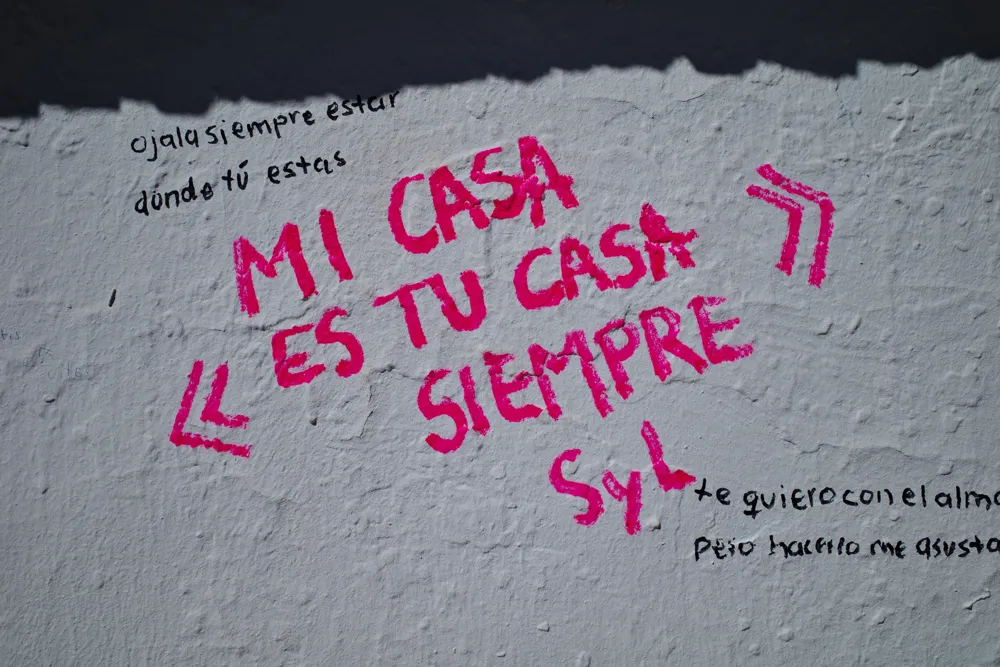 ojala siempre estar
donde tú estas
« MI CASA
ES TU CASA
SIEMPRE »
SyL
te quiero con el alma
Pero hacerlo me asusta